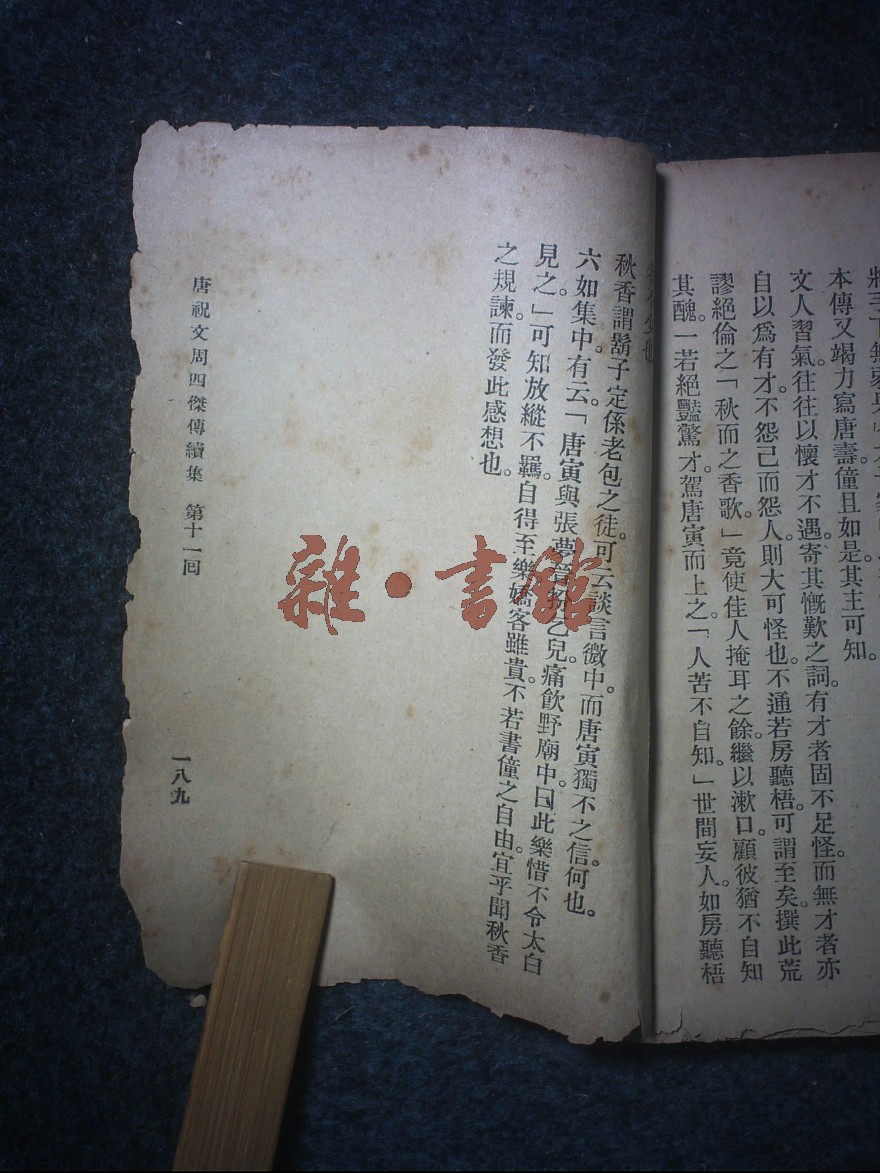 本傳又竭力寫唐壽僮且如是其主可知。
文人習氣。往往以懷才不遇。寄其慨歎之詞。有才者固不足怪。而無才者亦
自以爲有才。不怨己而怨人。則大可怪也。不通若房聽梧。可謂至矣。撰此荒
謬絕倫之「秋而之香歌。」竟使佳人掩耳之餘。繼以漱口。顧彼猶不自知
其醜。一若絕豔驚才。駕唐寅而上之。「人苦不自知」世間妄人。如房聽梧
秋香謂鬍子定係老包之徒。可云談言微中。而唐寅獨不之信。何也。
六如集中。有云。「唐寅與張夢晉扮乞兒。痛飲野廟中。曰此樂惜不令太白
見之。」可知放縱不羈。自得至樂。嬌客雖貴。不若書僮之自由。宜乎聞秋香
之規諫。而發此感想也。
唐祝文周四傑傳續集 第十一回
一八九
雜·書館